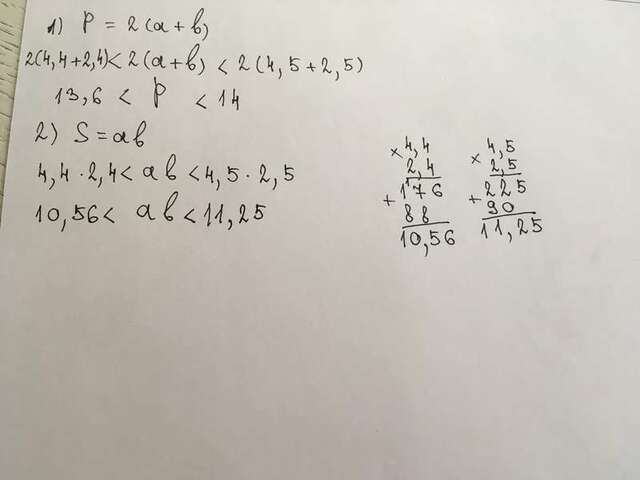 1) P = 2(a+b)
2(4,4+2,4)<2(a+b) < 2(4,5+2,5)
13,6 < P < 14
2) S = ab
4,4 · 2,4 < ab < 4,5 · 2,5
10,56 < ab < 11,25
× 4,4
2,4
+ 176
88
10,56
× 4,5
2,5
+ 225
90
11,25